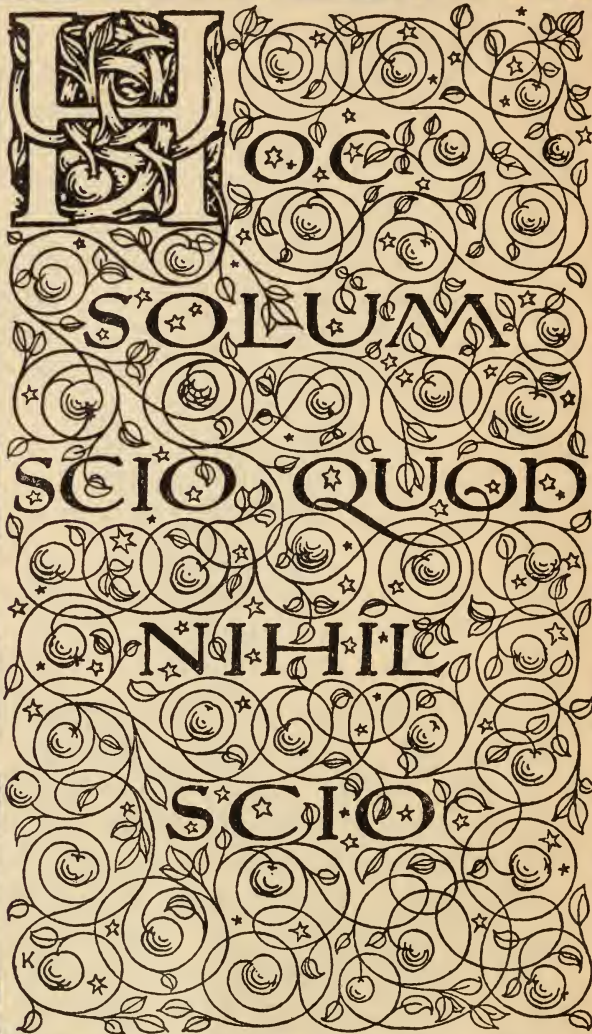 HOC
SOLUM
SCIO QUOD
NIHIL
SCIO
K